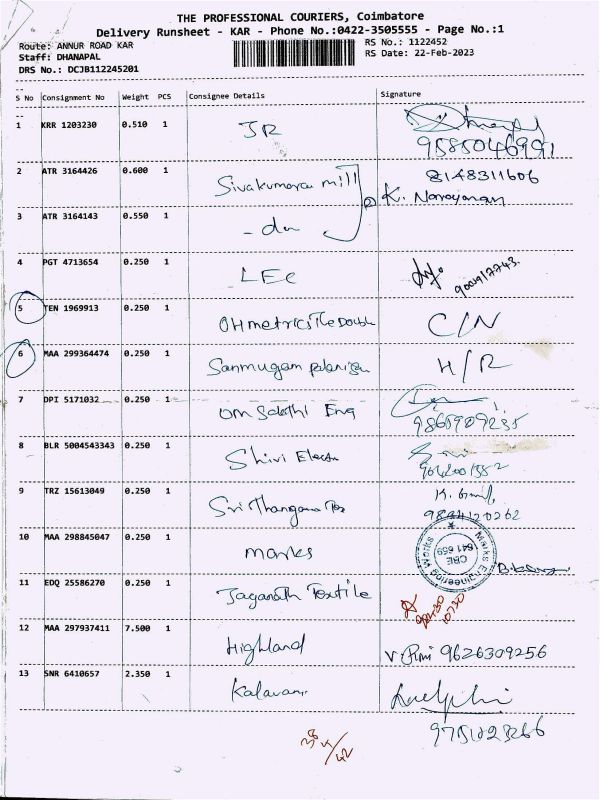 THE PROFESSIONAL COURIERS, Coimbatore
Delivery Runsheet - KAR - Phone No.:0422-3505555 - Page No.:1
Route: ANNUR ROAD KAR
RS No.: 1122452
Staff: DHANAPAL
RS Date: 22-Feb-2023
DRS No.: DCJB112245201
S No Consignment No Weight PCS Consignee Details Signature
1 KRR 1203230 0.510 1 JR
9585046991
2 ATR 3164426 0.600 1 Sivakumaran mill 8148311606
K. Narayanan
3 ATR 3164143 0.550 1 - do
4 PGT 4713654 0.250 1 LEC
5 TEN 1969913 0.250 1 OHmetrics C/N
6 MAA 299364474 0.250 1 Sanmugam H/R
7 DPI 5171032 0.250 1 om Sakthi Eng
9865909235
8 BLR 5004543343 0.250 1 Shivi
9 TRZ 15613049 0.250 1 Sri
10 MAA 298845047 0.250 1 marks
Marks Engineering Works
CBE
641 659
11 EDQ 25586270 0.250 1 Jaganath Textile
12 MAA 297937411 7.500 1 Highland 9626309256
13 SNR 6410657 2.350 1 Kalavani